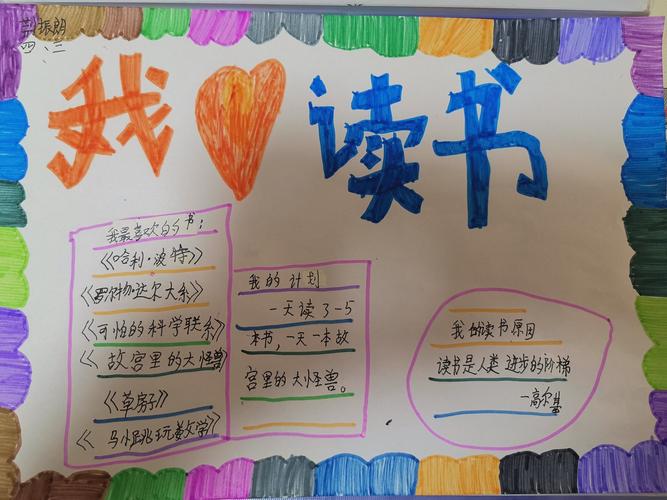 郭振朗
四、三
我 读书
我最喜欢的书:
《哈利·波特》
《罗尔物·达尔大系》
《可怕的科学联系》
《故宫里的大怪兽》
《草房子》
《马小跳玩美文学》
我的计划
一天读3-5
本书,一天一本故
宫里的大怪兽。
我的读书原因
读书是人类进步的阶梯
—高尔基